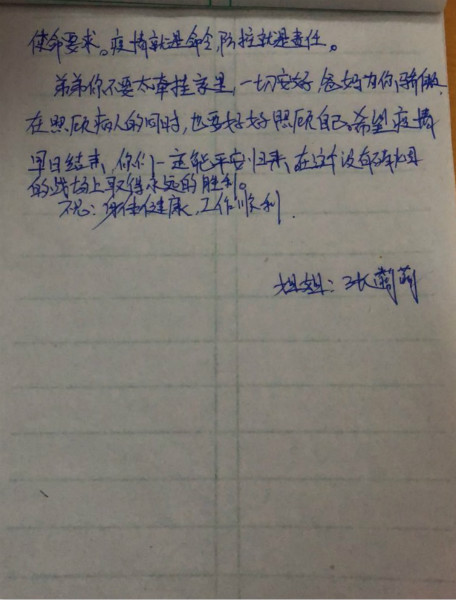 使命要求。疫情就是命令,防控就是责任。
弟弟你不要太牵挂家里,一切安好,爸妈为你骄傲,
在照顾病人的同时,也要好好照顾自己,希望疫情
早日结束,你们一定能平安归来,在这个没有硝烟
的战场上取得永远的胜利。
祝:身体健康,工作顺利
姐姐:张